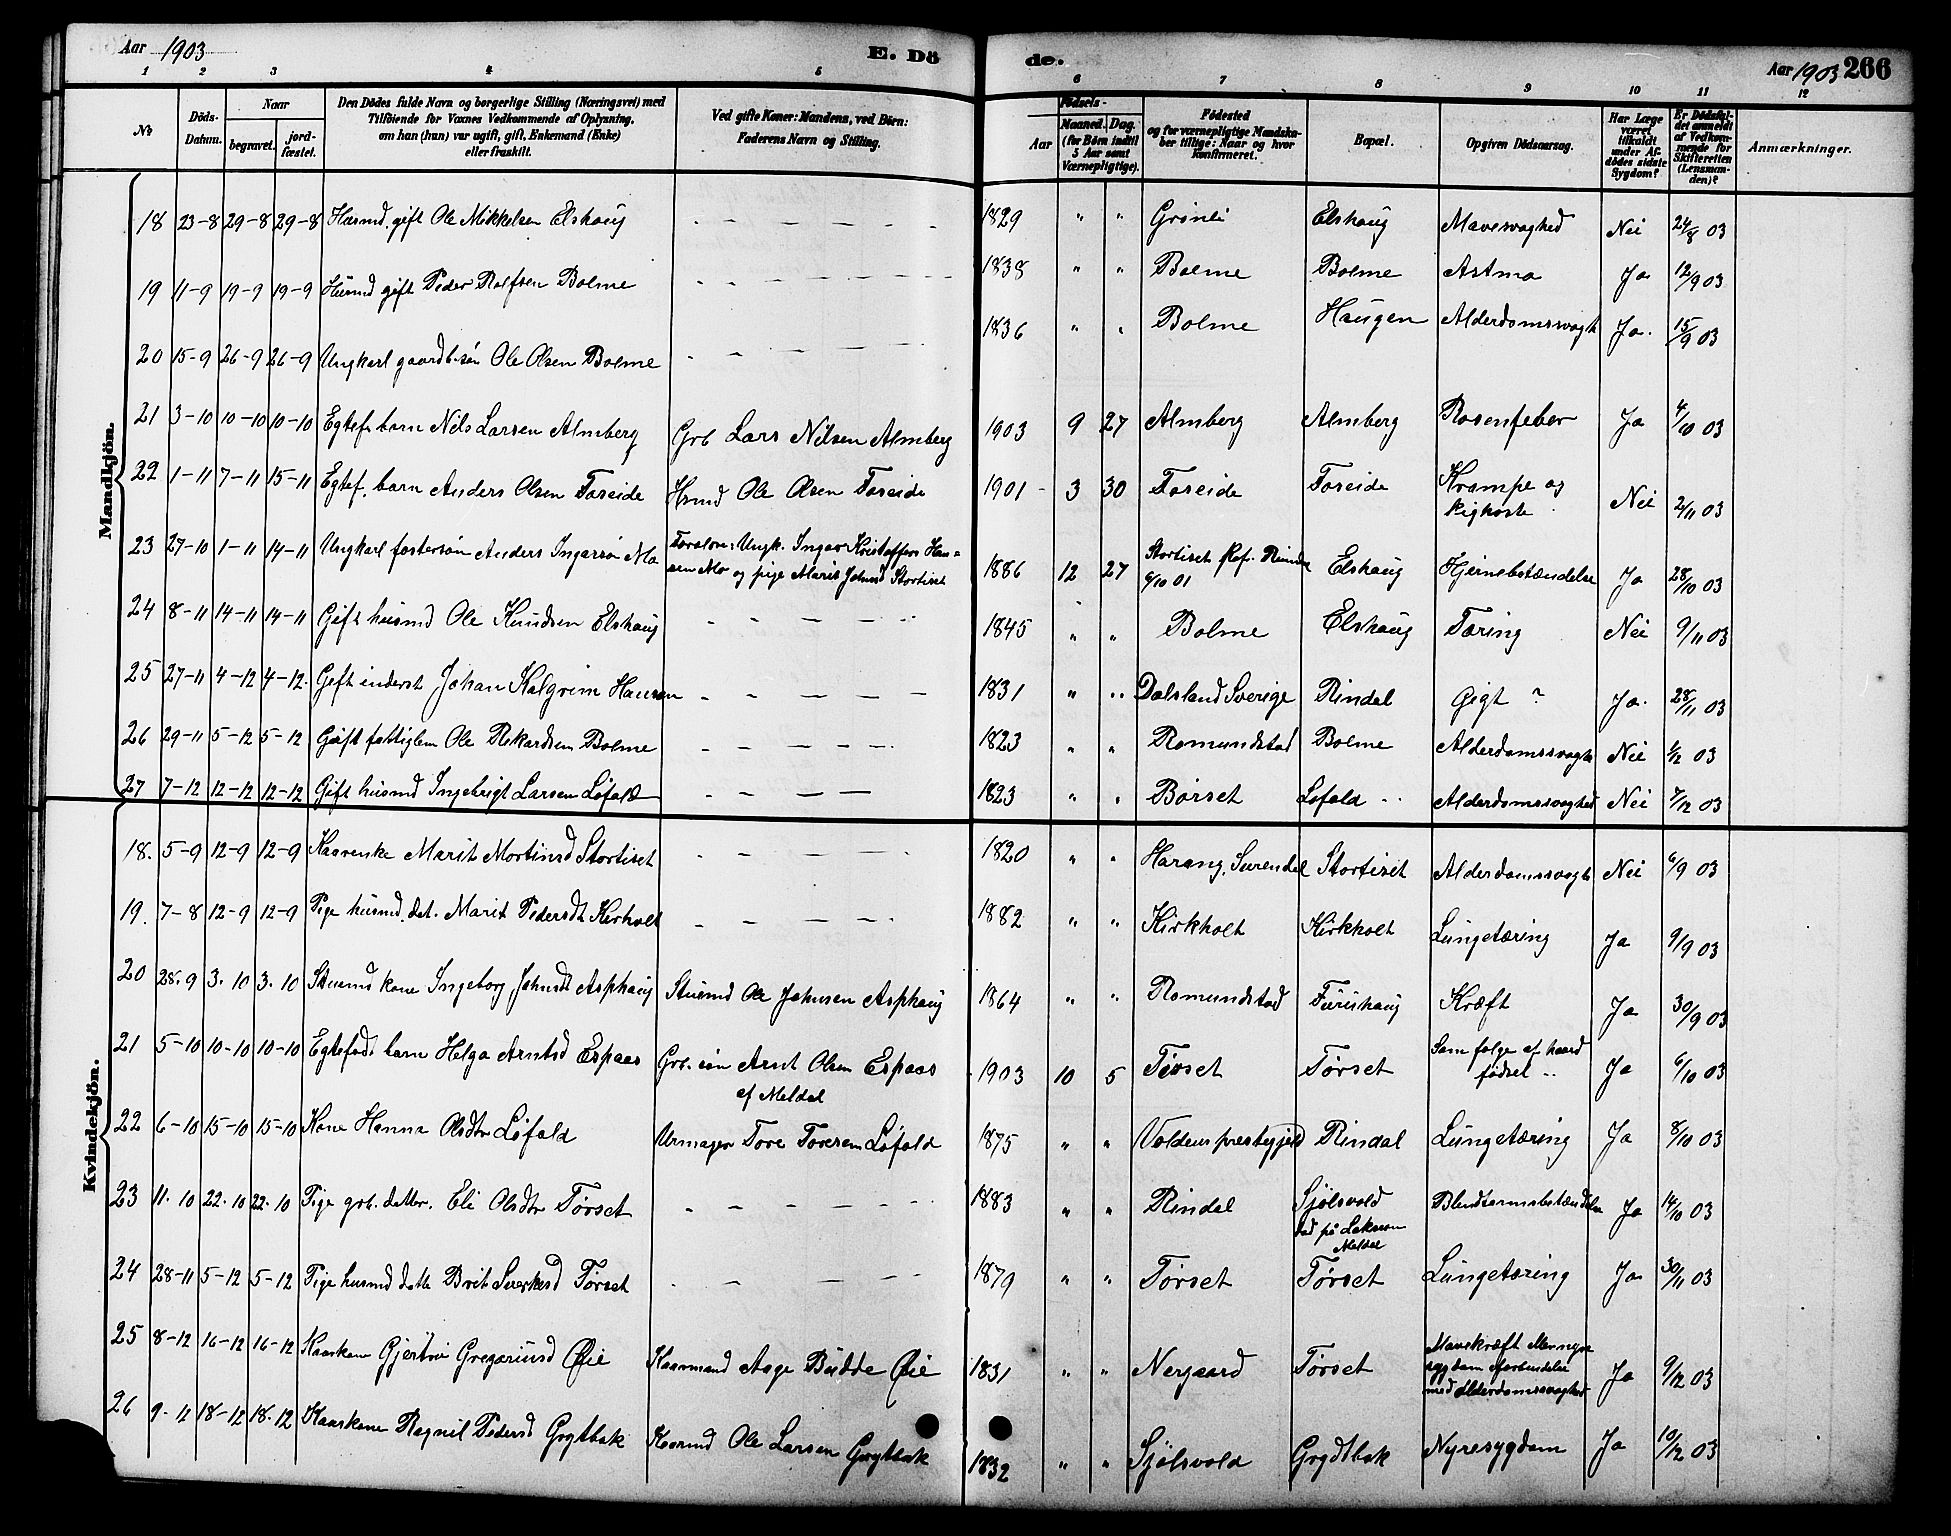 Aar 1903 E. Dö
1 2 3 4 5
№ Döds-Datum. Naar begravet. jordfæstet. Den Dödes fulde Navn og borgerlige Stilling (Næringsvei) med Tilföiende for Voxnes Vedkommende af Oplysning, om han (hun) var ugift, gift, Enkemand (Enke) eller fraskilt. Ved gifte Koner: Mandens, ved Börn: Faderens Navn og Stilling.
de. Aar 1903 266
6 7 8 9 10 11 12
Födsels- Aar Maaned. Dag. (for Börn indtil 5 Aar samt Værnepligtige). Födested og for værnepligtige Mandskaber tillige: Naar og hvor konfirmeret. Bopæl. Opgiven Dödsaarsag. Har Læge været tilkaldt under Afdödes sidste Sygdom? Er Dödsfaldet anmeldt af Vedkommende for Skifteretten (Lensmanden)? Anmærkninger.
Mandkjön.
18 23-8 29-8 29-8 gift Ole Mikkelsen Elshaug - - - - - 1829 " " Grönli Elshaug Mavesvaghed Nei 24/8 03
19 11-9 19-9 19-9 Husmd gift Peder Rolfsen Bolme - - - - - 1838 " " Bolme Bolme Astma Ja 12/9 03
20 15-9 26-9 26-9 Ungkarl gaardb. sön Ole Olsen Bolme - - - - - 1836 " " Bolme Haugen Alderdomssvagh Ja. 15/9 03
21 3-10 10-10 10-10 Egtef. barn Nils Larsen Almberg Grb Lars Nilsen Almberg 1903 9 27 Almberg Almberg Rosenfeber Ja 4/10 03
22 1-11 7-11 15-11 Egtef. barn Anders Olsen Foseide Hsmd Ole Olsen Foseide 1901 - 3 30 Foseide Foseide Krampe og
kighoste Nei 2/11 03
23 27-10 1-11 14-11 Ungkarl fostersön Anders Ingarsön Mo Forældre: Ungk. Ingar Kristoffers Han-
sen Mo og pige Marit Johnsd Stortiset 1886 12 27 Stortiset Kof. Rinda
6/10 01 Elshaug Hjernebetændelse Ja 28/10 03
24 8-11 14-11 14-11 Gift husmd Ole Knudsen Elshaug - - - - - 1845 " " Bolme Elshaug Tæring Nei 9/11 03
25 27-11 4-12 4-12. Gift inderst Johan Halgrim Hansen - - - - - 1831 " " Dalsland Sverige Rindal Gigt ? Ja. 28/11 03
26 29-11 5-12 5-12 Gift fattiglem Ole Rikardsen Bolme - - - - - 1823 " " Romundstad Bolme Alderdomssvagh Nei 1/12 03
27 7-12 12-12 12-12 Gift husmd Ingebrigt Larsen Löfald - - - - 1823 " " Börset Löfald Alderdomssvaghed Nei 7/12 03
Kvindekjön.
18. 5-9 12-9 12-9 Kaarenke Marit Mortinsd Stortiset - - - - - 1820 " " Harang, Surendal Stortiset Alderdomssvagh Nei 6/9 03
19. 7-8 12-9 12-9 Pige husmd. dat. Marit Pedersdt Kirkholt - - - - - 1882 " " Kirkholt Kirkholt Lungetæring Ja 9/9 03
20 28.9 3.10 3.10 Stuemd kone Ingeborg Johnsdt Asphaug Stuemd Ole Johnsen Asphaug 1864 " " Romundstad Furuhaug Kræft Ja 30/9 03
21 5-10 10-10 10-10 Egtefödt barn Helga Arntsd Espaas Grb. sön Arnt Olsen Espaas
af Meldal 1903 10 5 Törset Törset Som fölge af haard
födsel Ja 6/10 03
22 6-10 15-10 15-10 Kone Hanna Olsdtr Löfald Urmager Tore Toresen Löfald 1875 " " Voldens prestegjeld Rindal Lungetæring Ja 8/10 03
23 11.10 22.10 22.10 Pige grb. datter. Eli Olsdtr Törset - - - - - 1883 " " Rindal Sjölsvold
död på Löksmo
Meldal Blindtarmsbetændelse Ja 14/10 03
24 28-11 5-12 5-12 Pige husmd datt Brit Sivertsd Törset - - - - - 1879 " " Törset Törset Lungetæring Ja 30/11 03
25 8-12 16-12 16-12 Kaarkone Gjertru Gregoriusd Øie Kaarmand Aage Budde Øie 1831 " " Nergaard Törset Mavekræft
med Alderdomssvaghed Ja 9/12 03
26 9.12 18-12 18.12 Kaarkone Ragnil Pedersd Grytbak Kaarmd Ole Larsen Grytbak 1832 " " Sjölsvold Grydtbak Nyresygdom Ja 10/12 03